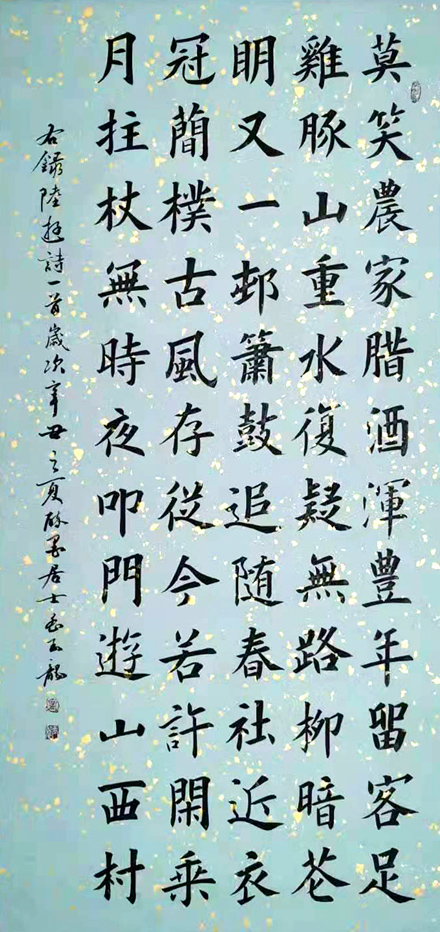 莫笑農家腊酒渾豊年留客足
雞豚山重水復疑無路柳暗花
明又一邨簫鼓追随春社近衣
冠簡樸古風存從今若許閑乘
月拄杖無時夜叩門遊山西村
右錄陸遊詩一首歲次辛丑之夏居士